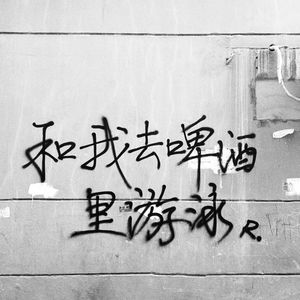 和我去啤酒
里游泳 R.